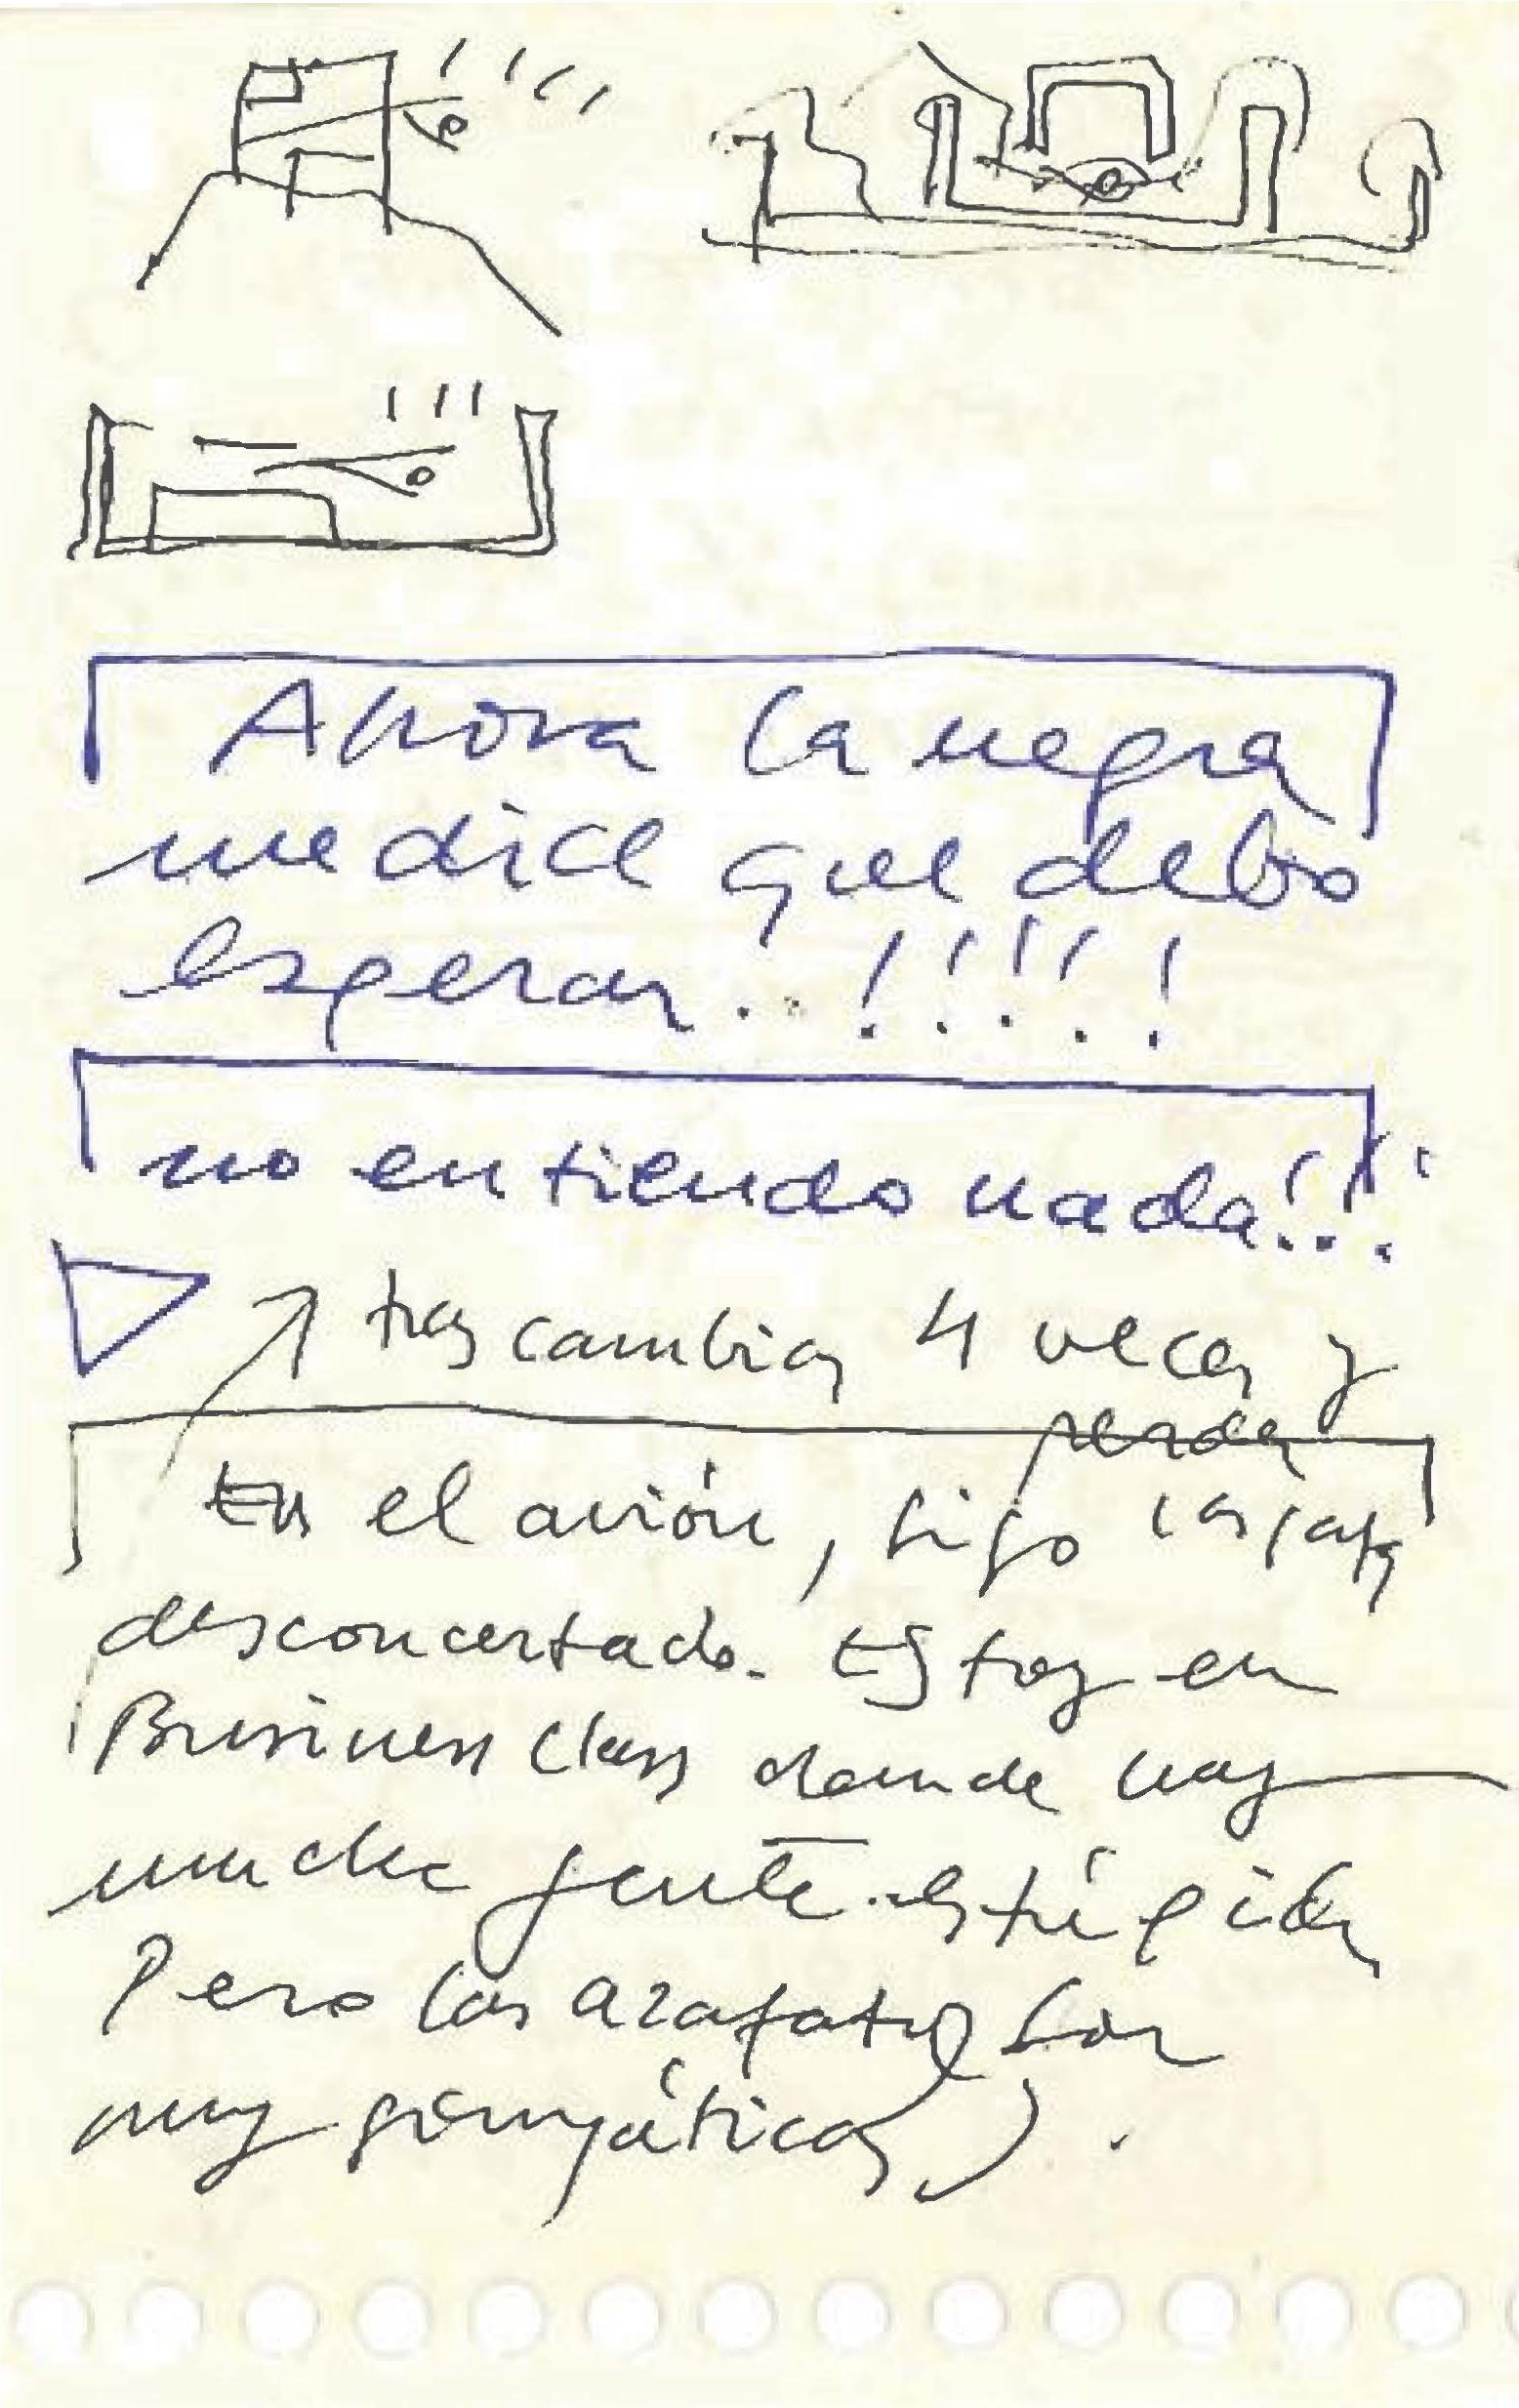 Ahora la negra
me dice que debo
esperar..!!!!!
no entiendo nada!!!
tras cambiar 4 veces y
perder
las gafas
En el avión, sigo
desconcertado. Estoy en
Business Class donde hay
mucha gente estúpida
Pero las azafatas son
muy simpáticas).